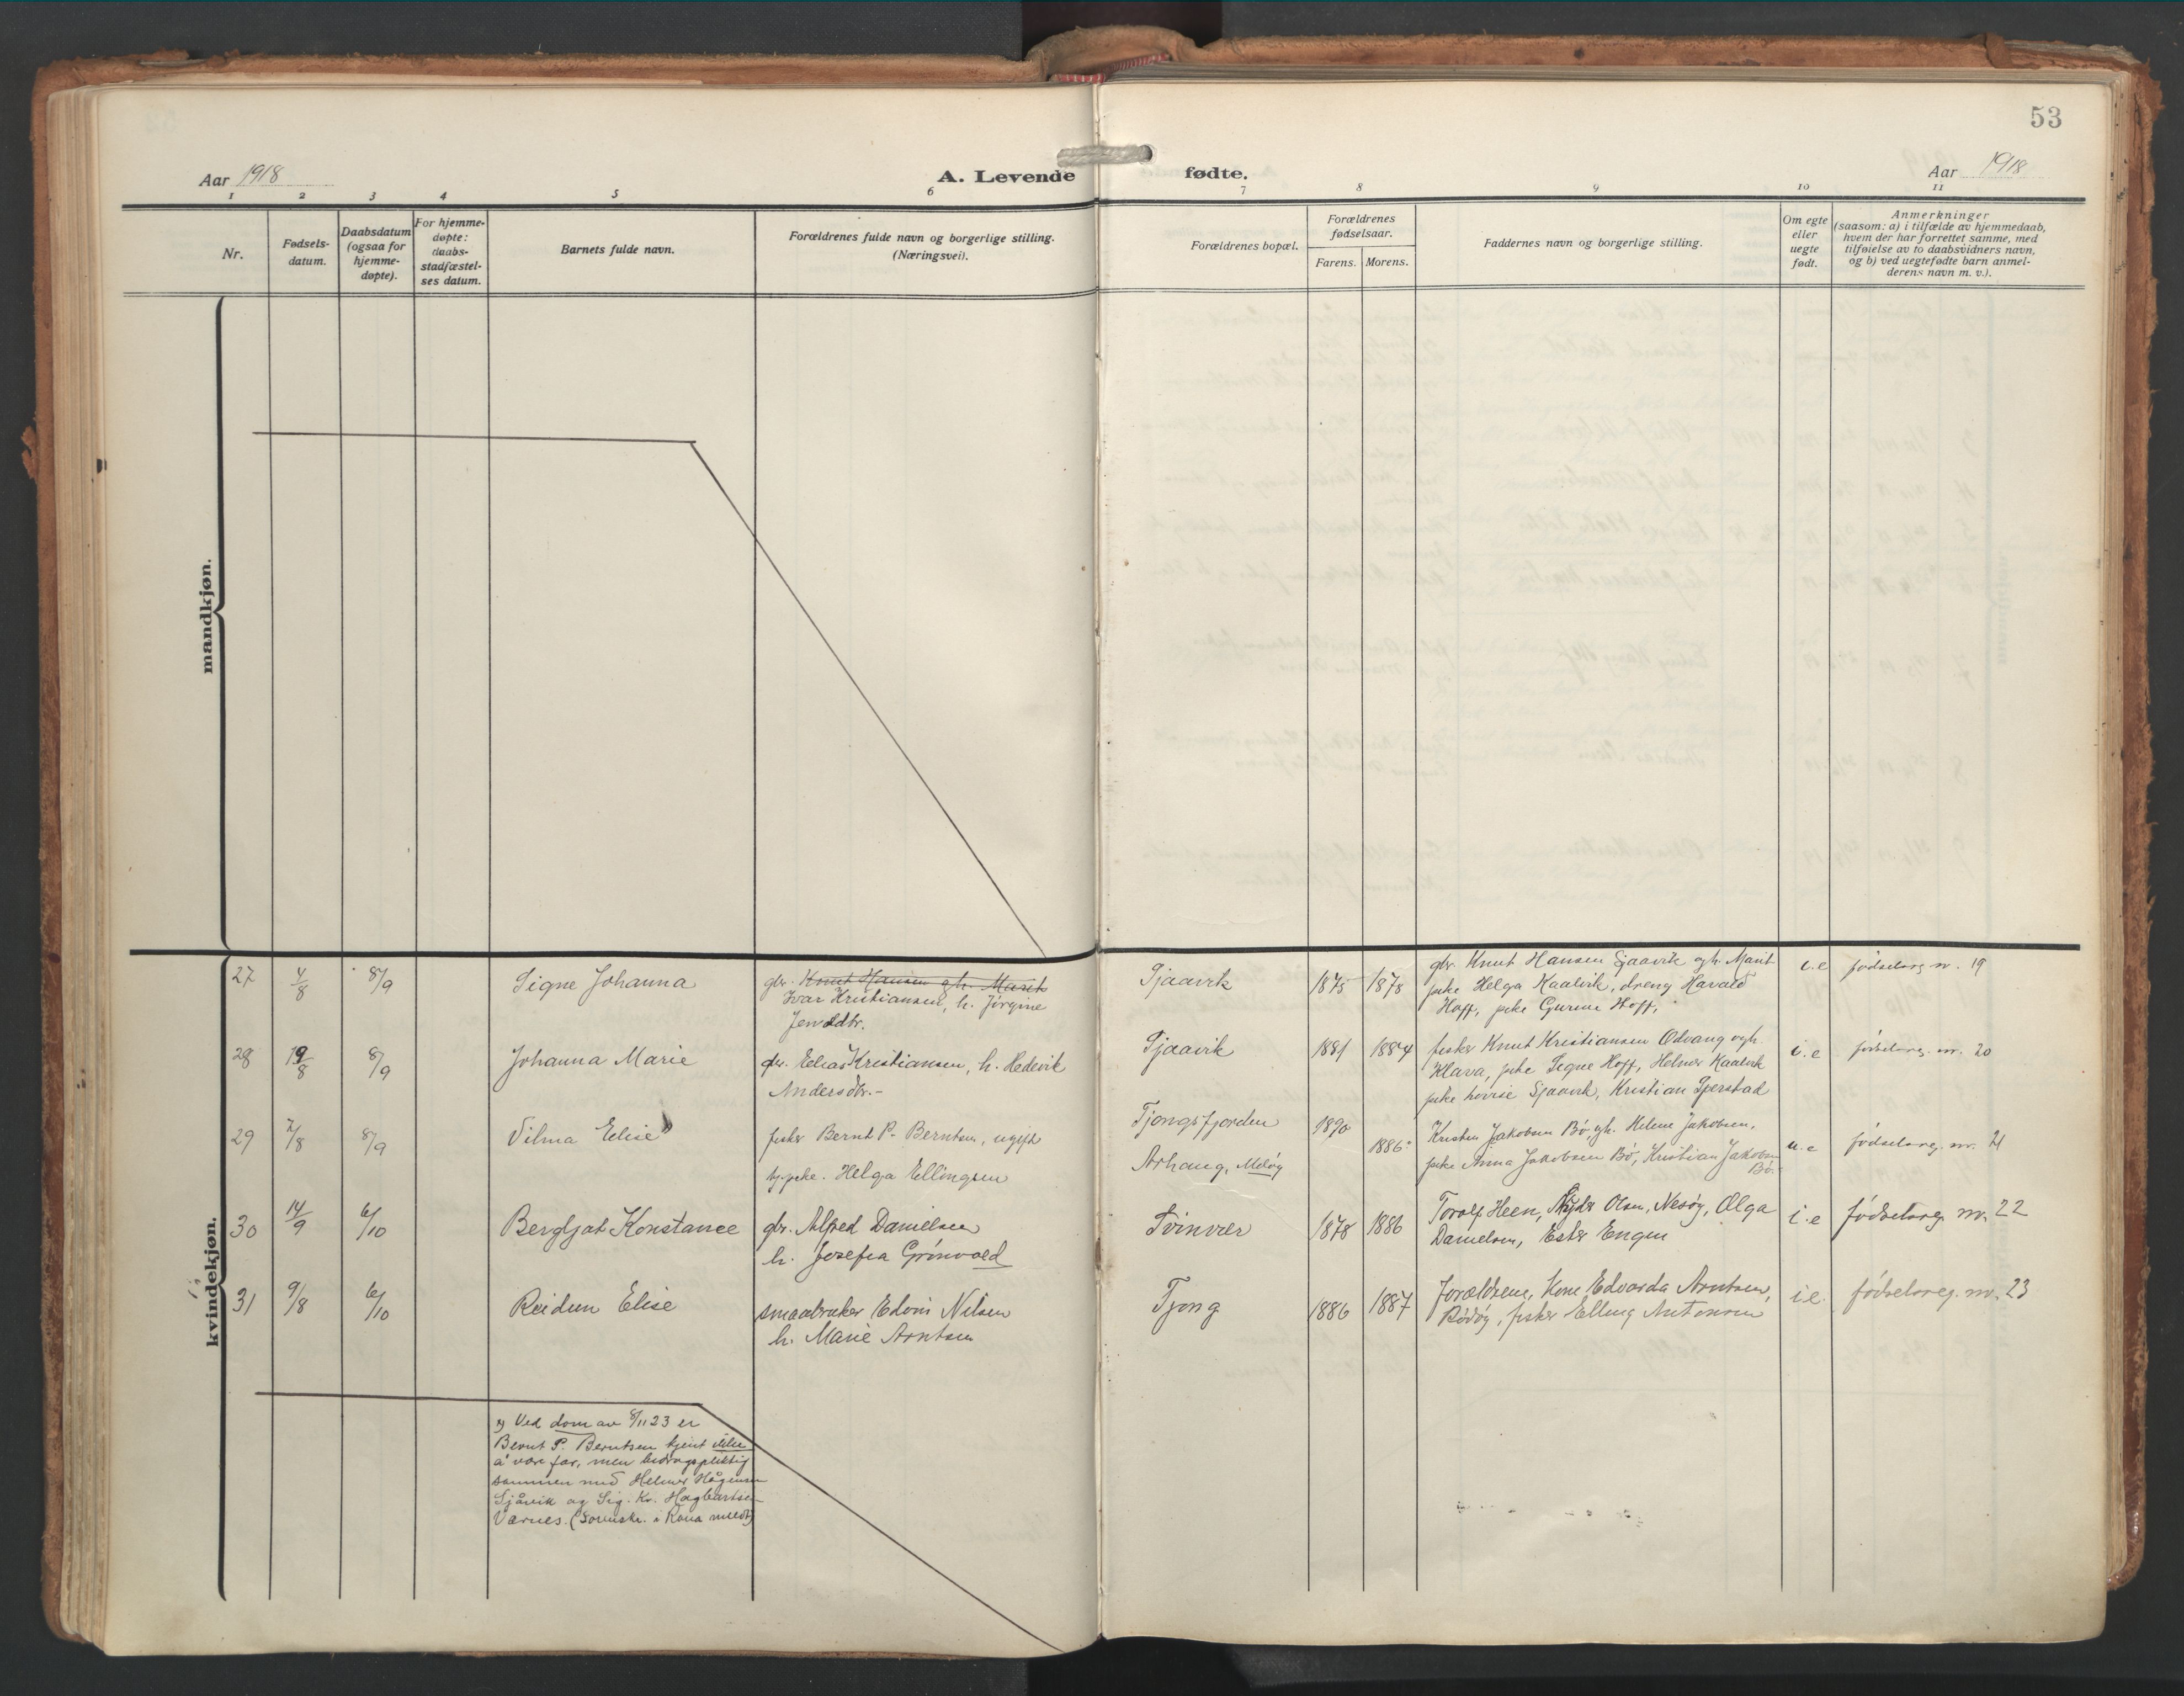 53
Aar 1918
A. Levende fødte.
Aar 1918
1 2 3 4 5 6 7 8 9 10 11
Nr.
Fødsels-
datum.
Daabsdatum
(ogsaa for
hjemme-
døpte).
For hjemme-
døpte:
daabs-
stadfæstel-
ses datum.
Barnets fulde navn.
Forældrenes fulde navn og borgerlige stilling.
(Næringsvei).
Forældrenes bopæl.
Forældrenes
fødselsaar.
Farens. Morens.
Faddernes navn og borgerlige stilling.
Om egte
eller
uegte
født.
Anmerkninger
(saasom: a) i tilfælde av hjemmedaab,
hvem der har forrettet samme, med
tilføielse av to daabsvidners navn,
og b) ved uegtefødte barn anmel-
derens navn m. v.).
mandkjøn.
kvindekjøn.
27 4/8 8/9 Signe Johanna
gbr. Knut Hansen gh. Marit
Ivar Kristiansen, h. Jørgine
Jensdtr.
Sjaavik 1875 1878
gbr. Knut Hansen Sjaavik ogh. Marit
pike Helga Kaalvik, dreng Harald
Hoff, pike Gurine Hoff,
i.e fødselsreg nr. 19
28 19/8 8/9 Johanna Marie
gbr. Edias Kristiansen, h. Hedevik
Andersdtr.-
Sjaavik 1881 1884
fisker Knut Kristiansen Odvang ogh.
Klara, pike Signe Hoff, Helmer Kaalvik
pike Lovise Sjaavik, Kristian Sperstad
i.e fødselsreg. nr. 20
29 2/8 8/9 Vilma Elise
fisker Bernt P. Berntsen, ugift
tj.pike. Helga Ellingsen
Tjongsfjorden 1890
Arhaug, Meløy 1886
Kristen Jakobsen Bø ogh. Helene Jakobsen,
pike Anna Jakobsen Bø, Kristian Jakobsen
Bø.
u.e fødselsreg. nr. 21
30 14/9 6/10 Bergljot Konstance
gbr. Alfred Danielsen
h. Josefia Grønvold
Svinvær 1878 1886
Torolf Heen, Olsen, Nesøy, Olga
Danielsen, Ester Engen
i.e fødselsreg. nr. 22
31 9/8 6/10 Reidun Elise
smaabruker Edvin Nilsen
h. Marie Arntsen
Tjong 1886 1887
Forældrene, Kone Edvarda Arntsen,
Rødøy, fisker Elling Antonsen
i.e. fødselsreg. nr. 23
x) Ved dom av 8/11 23 er
Bernt P. Berntsen kjent ikke
å være far, men bidragspliktig
sammen med Helmer Hågensen
Sjåvik og Sig. Kr. Hagbartsen
Værnes. (Sorenskr. i Rana meddt)